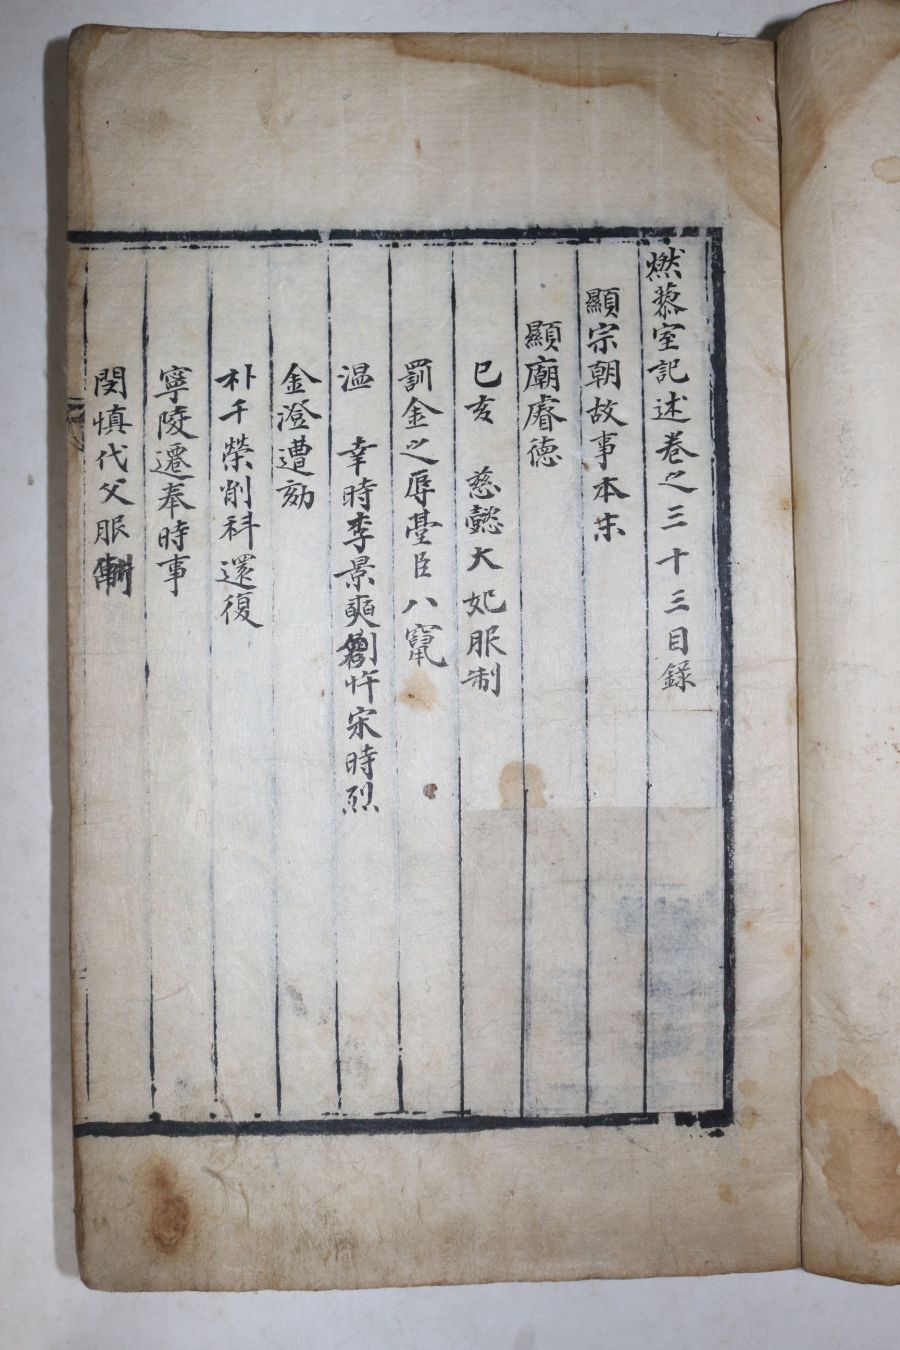 燃藜室記述卷之三十三目録
顯宗朝故事本末
顯廟睿德
己亥 慈懿大妃服制
罰金之辱臺臣八竄
温 幸時李景奭劄忤宋時烈
金澄遭劾
朴千榮削科還復
寧陵遷奉時事
閔慎代父服